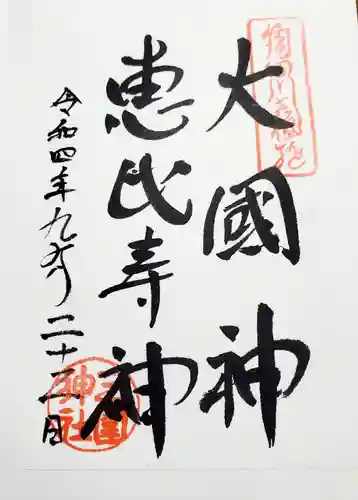 大國神
恵比寿神
令和四年九月二十三日
三国神社